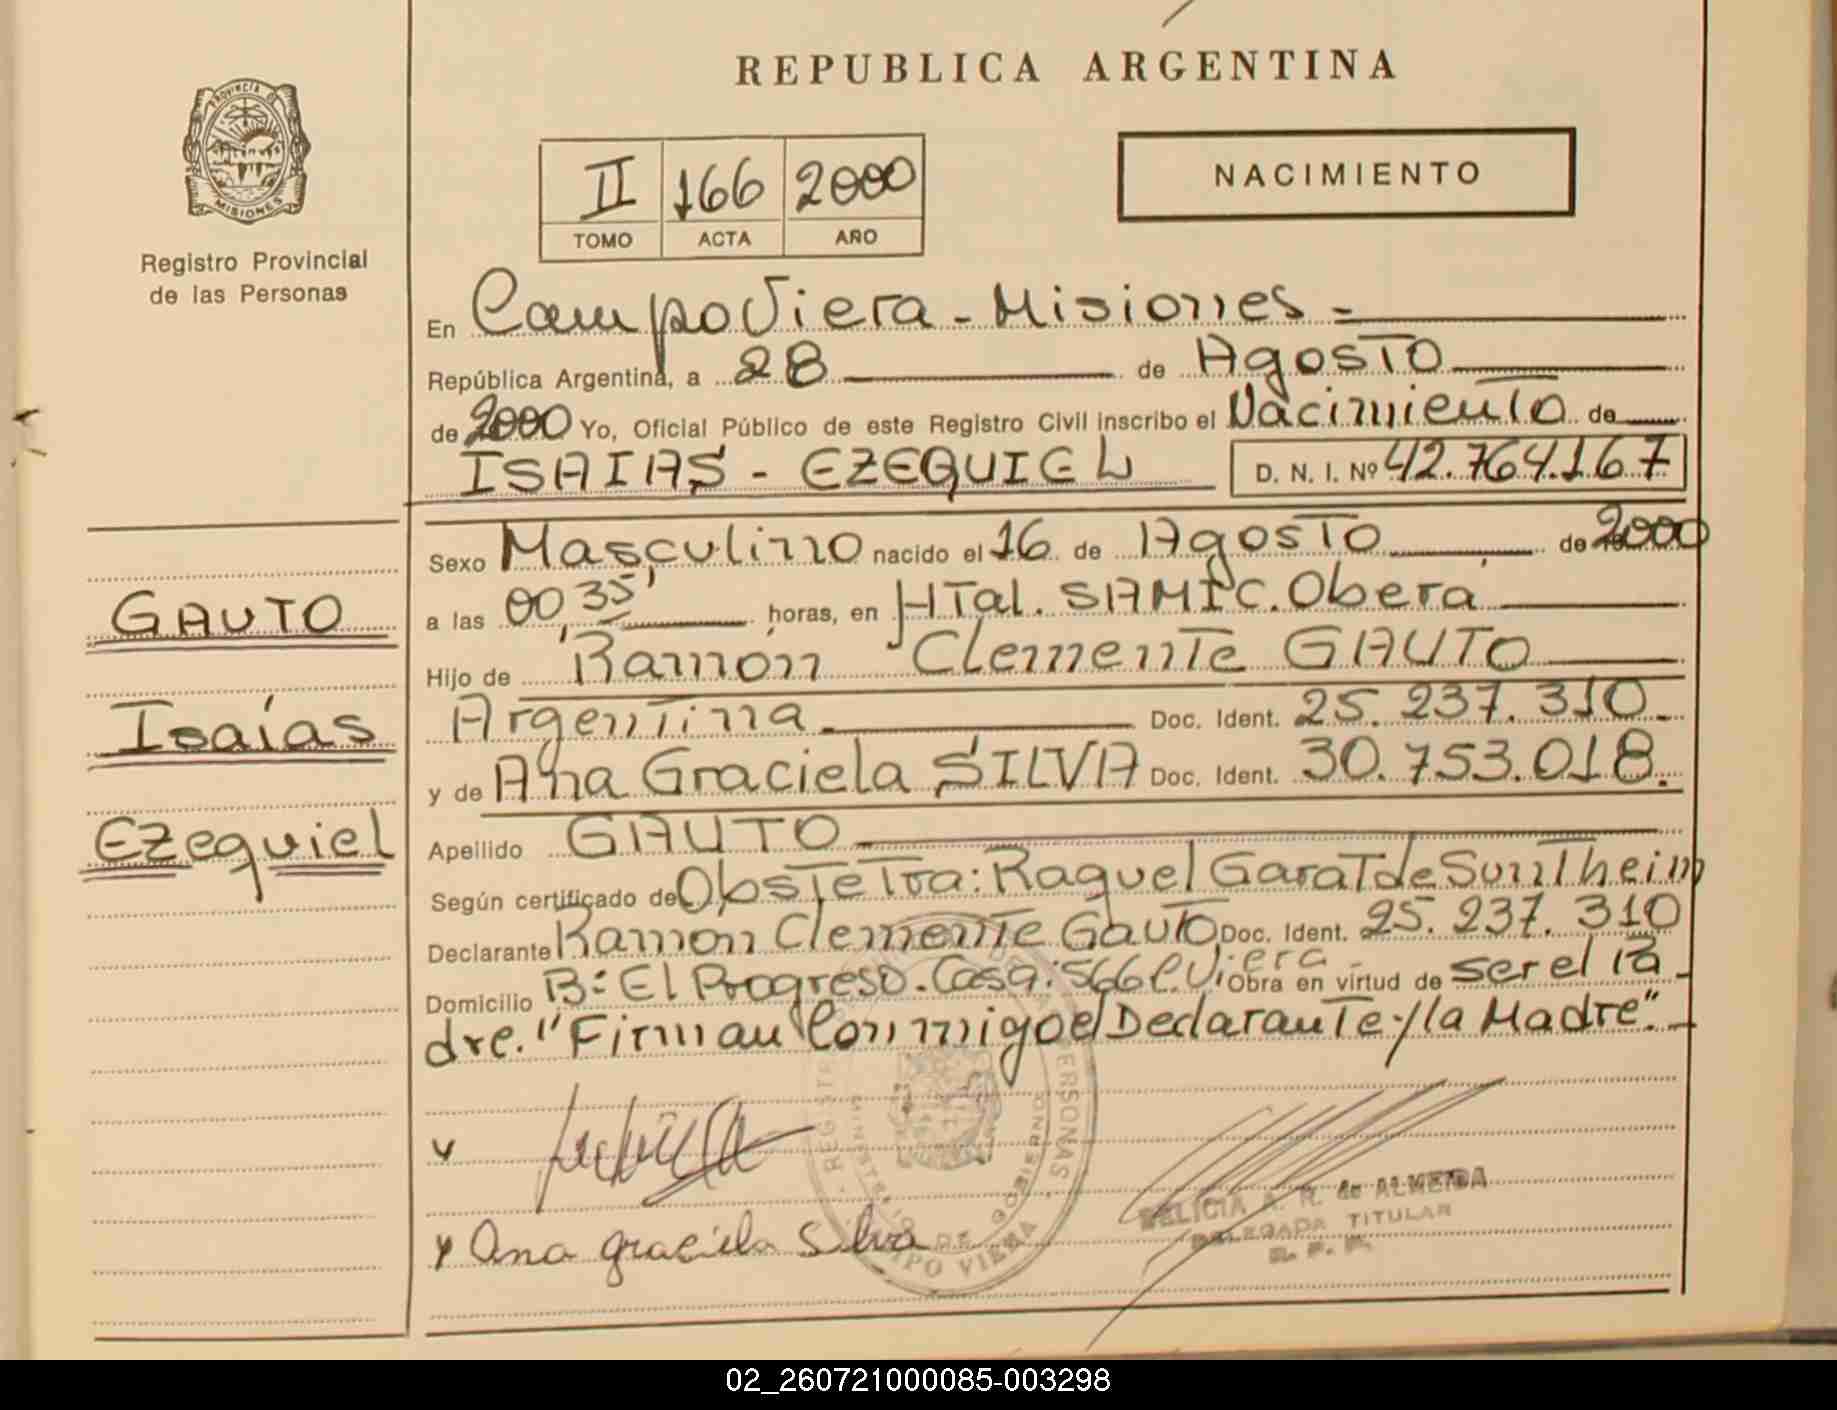 REPUBLICA ARGENTINA
PROVINCIA DE
MISIONES
Registro Provincial
de las Personas
II 166 2000
TOMO ACTA AÑO
NACIMIENTO
En Campo Viera - Misiones =
República Argentina, a 28 de Agosto
de 2000 Yo, Oficial Público de este Registro Civil inscribo el Nacimiento de
ISAIAS - EZEQUIEL D. N. I. Nº 42.764.167
Sexo Masculino nacido el 16 de Agosto de 2000
a las 00,35' horas, en HTal. SAMIC. Oberá
Hijo de Ramón Clemente GAUTO
Argentina Doc. Ident. 25.237.310.
y de Ana Graciela SILVA Doc. Ident. 30.753.018.
Apellido GAUTO
Según certificado de Obstetra: Raquel Garat de Suntheim
Declarante Ramon Clemente Gauto Doc. Ident. 25.237.310
Domicilio B: El Progreso. Casa: 566 C. Viera Obra en virtud de ser el Pa-
dre. "Firman Conmigo el Declarante y la Madre".-
GAUTO
Isaías
Ezequiel
Ana graciela Silva
DELICIA A. R. de ALMEIDA
DELEGADA TITULAR
R. P. P.
02_260721000085-003298